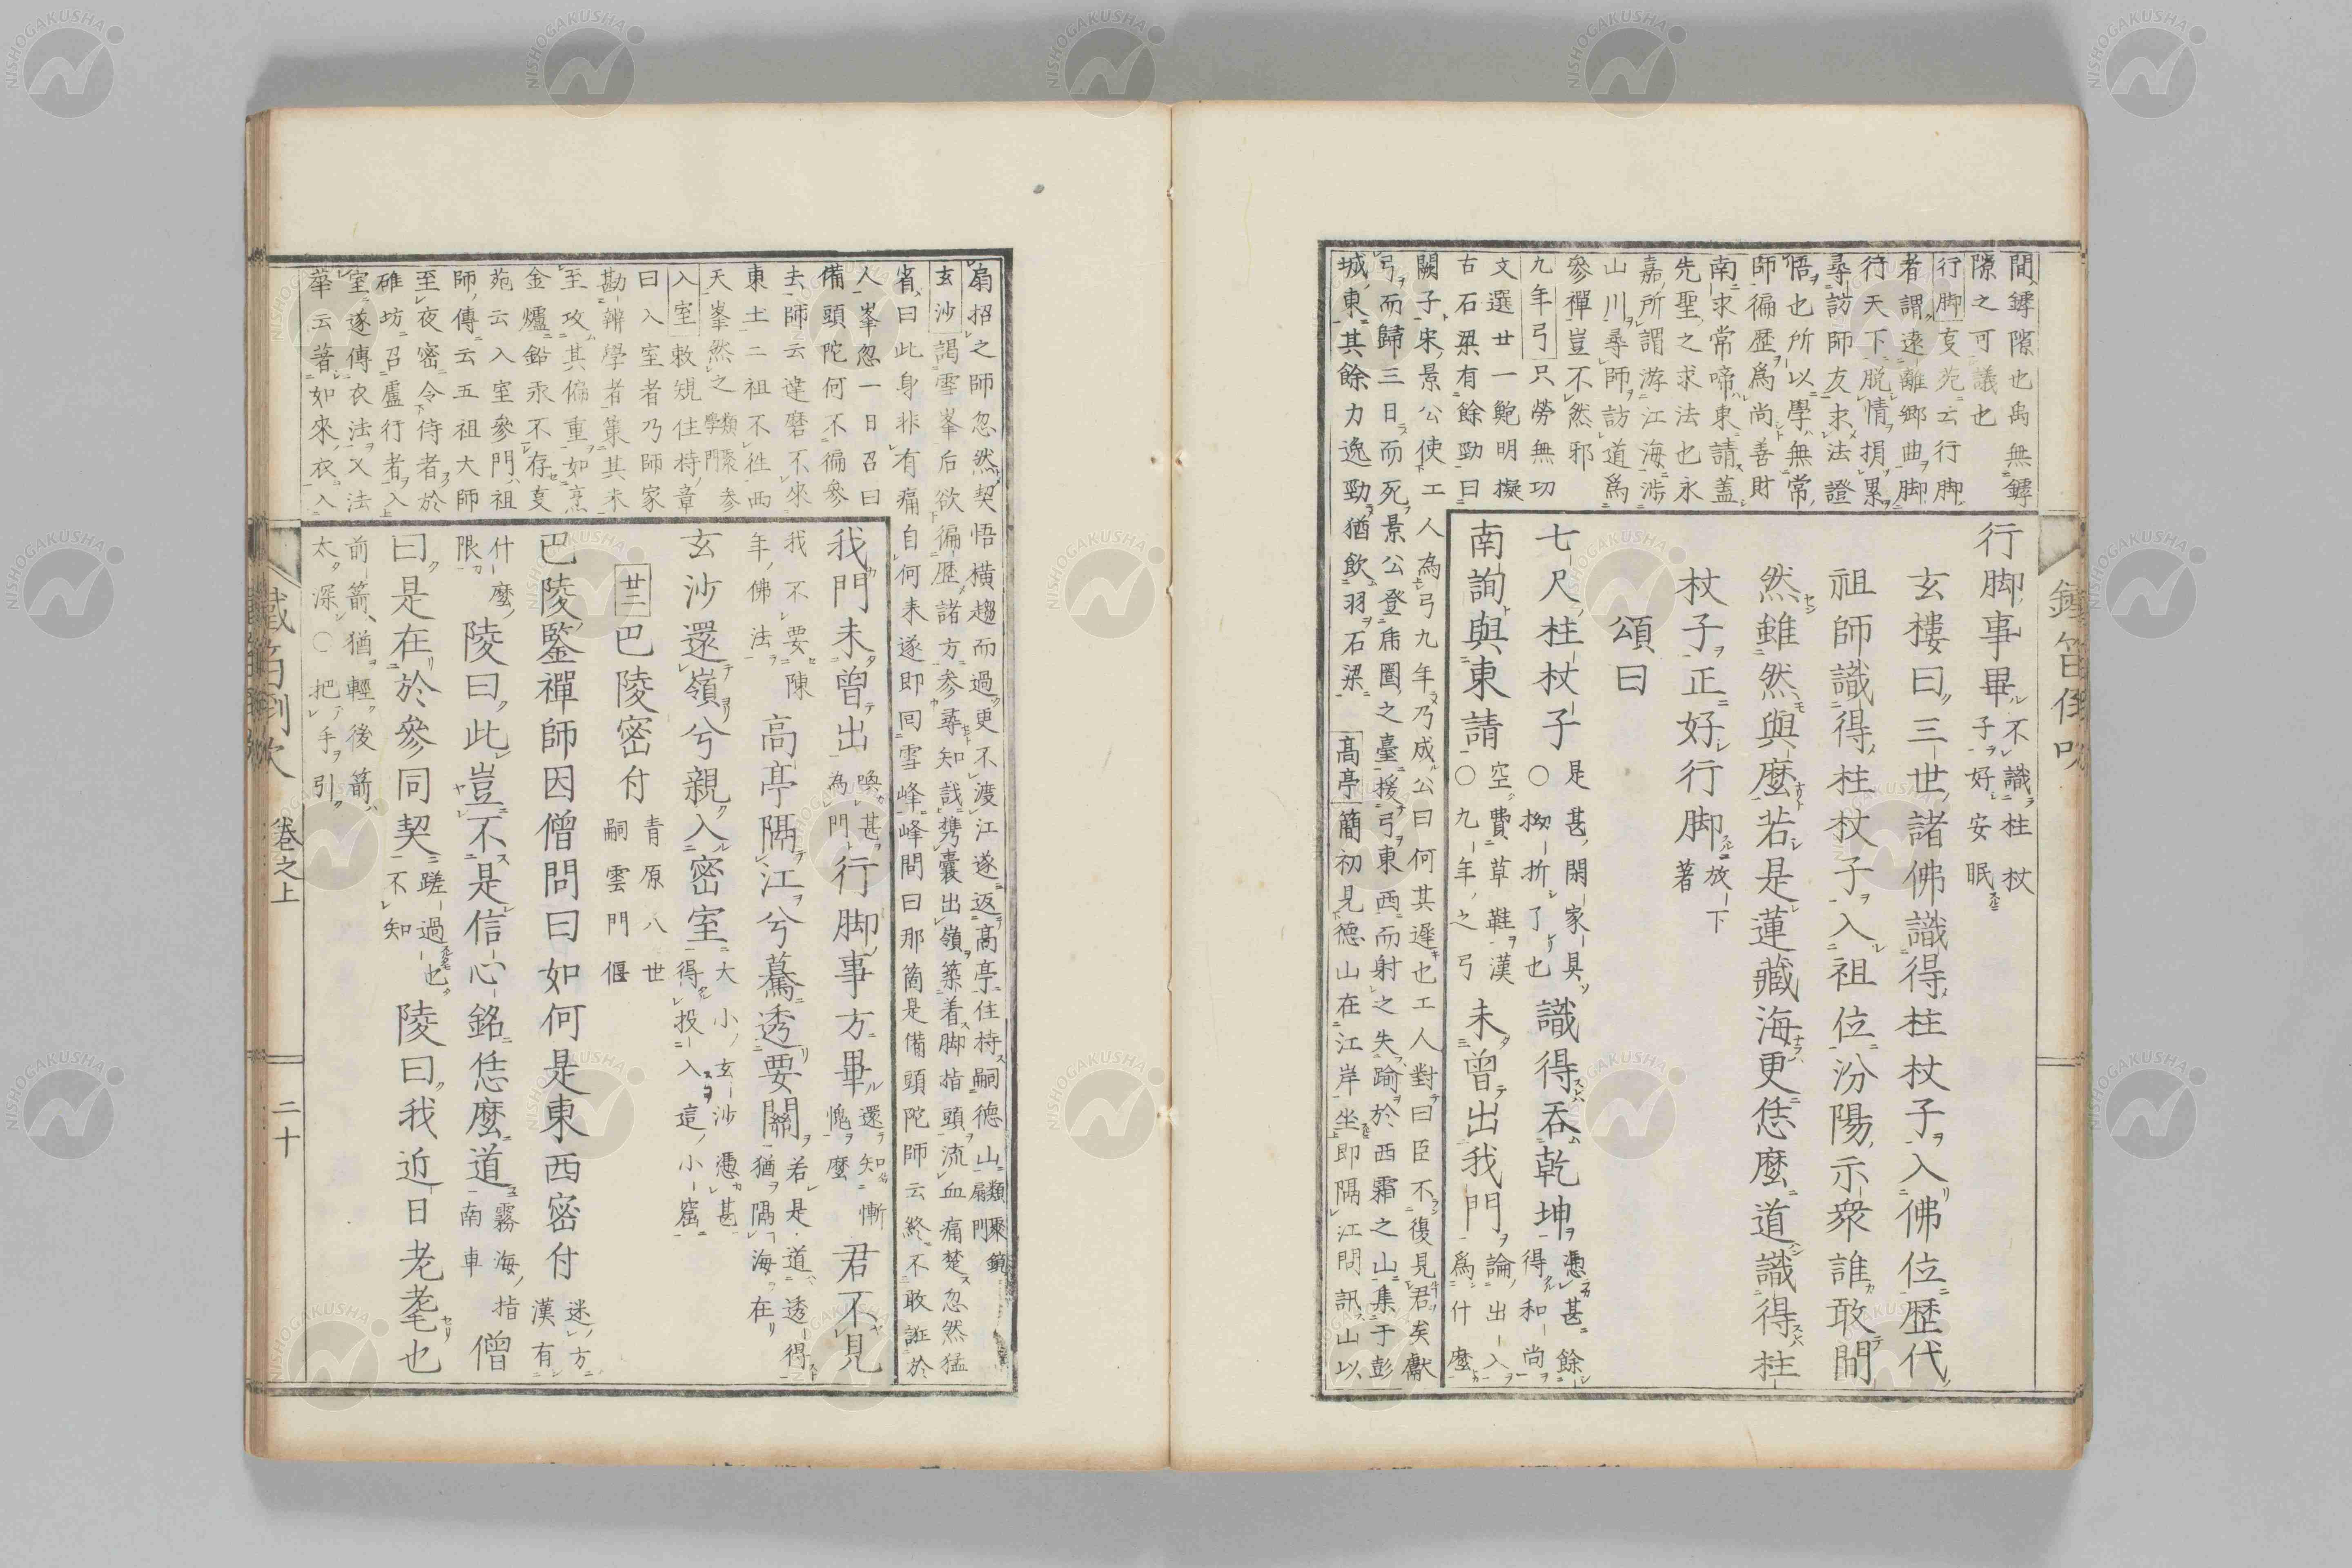 間罅隙也禹無罅
隙之可議也
行脚叓苑云行脚
者謂遠離郷曲脚
行天下脱情捐累
尋訪師友求法證
悟也所以學無常
師徧歴爲尚善財
南求常啼東請蓋
先聖之求法也永
嘉所謂游江海渉
山川尋師訪道爲
參禪豈不然邪
九年弓只勞無功
文選廿一鮑明擬
古石梁有餘勁曰
闕子宋景公使工人為弓九年乃成公曰何其遲也工人對曰臣不復見君矣獻
弓而歸三日而死景公登席圏之臺援弓東西而射之失踰於西霜之山集于彭
城東其餘力逸勁猶飲羽石梁
高亭簡初見德山在江岸坐即隔江問訊山以
行脚事畢不識柱杖子好安眠
玄樓曰三世諸佛識得柱杖子入佛位歴代
祖師識得柱杖子入祖位汾陽示衆誰敢間
然雖然與麼若是蓮藏海更恁麼道識得柱
杖子正好行脚放下著
頌曰
七尺柱杖子是甚閑家具〇拗折了也識得吞乾坤憑甚餘得和尚
南詢與東請空費草鞋漢〇九年之弓未曾出我門論出入爲什麼
扇招之師忽然契悟横趨而過更不渡江遂返高亭住持嗣德山類聚鏡扇門
玄沙謁雪峯后欲徧歴諸方参尋知哉携囊出嶺築着脚指頭流血痛楚忽然猛
省曰此身非有痛自何来遂即回雪峰峰問曰那箇是備頭陀師云終不敢誑於
人峯忽一日召曰
備頭陀何不徧參
去師云達磨不來
東土二祖不徃西
天峯然之類聚學門参
入室敕䂓住持章
曰入室者乃師家
勘辨學者策其未
至攻其偏重如烹
金爐鉛汞不存叓
苑云入室參門祖
師傳云五祖大師
至夜密令侍者於
碓坊召盧行者入
室遂傳衣法又法
華云著如來衣入
我門未曾出喚甚為門行脚事方畢還知慚愧麼君不見
我不要陳年佛法高亭隔江兮驀透要關若是道透得猶隔海在
玄沙還嶺兮親入密室大小玄沙憑甚得投入這小窟
廿二巴陵密付青原八世嗣雲門偃
巴陵鑒禪師因僧問曰如何是東西密付迷方漢有
什麼限陵曰此豈不是信心銘恁麼道霧海指南車僧
曰是在於參同契蹉過也不知陵曰我近日老耄也
前箭猶輕後箭太深〇把手引
鐵笛倒吹
卷之上
二十